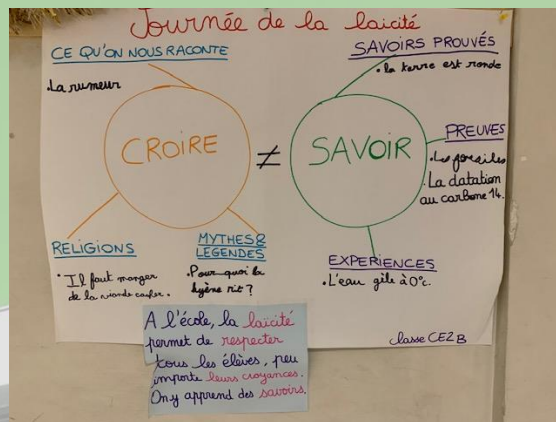 Journée de la laïcité
CE QU'ON NOUS RACONTE
• La rumeur
CROIRE
RELIGIONS
• Il faut manger
de la viande casher.
MYTHES &
LEGENDES
• Pourquoi la
hyène rit ?
≠
SAVOIRS PROUVÉS
• la terre est ronde
SAVOIR
PREUVES
• Les fossiles
• La datation
au carbone 14.
EXPERIENCES
• L'eau gèle à 0°c.
A l'école, la laïcité
permet de respecter
tous les élèves, peu
importe leurs croyances.
On y apprend des savoirs.
classe CE2 B